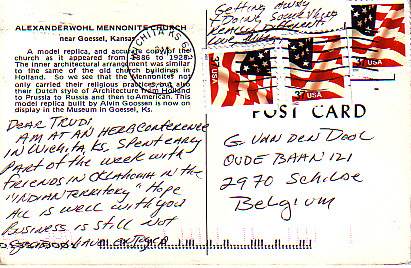 ALEXANDERWOHL MENNONITE CHURCH
near Goessel, Kansas
A model replica, and accurate copy of the
church as it appeared from 1886 to 1928.
The inner architectural arrangement was similar
to the same of the old church buildings in
Holland. So we see that the Mennonites not
only carried their religious practices and also
their Dutch style of Architecture from Holland
to Prussia to Russia and then to American. This
model replica built by Alvin Goossen is now on
display in the Museum in Goessel, Ks.
WICHITA KS
PM
Getting away
& Doing Something
DEAR TRUDI
AM AT AN HERB CONFERENCE
IN WICHITA, KS, SPENT EARLY
PART OF THE WEEK WITH
FRIENDS IN OKLAHOMA IN THE
"INDIAN TERRITORY" HOPE
ALL IS WELL WITH YOU
BUSINESS IS STILL NOT
37 USA
37 USA
37 USA
POST CARD
G. VAN DEN DOOL
OUDE BAAN 121
2970 SCHILDE
Belgium